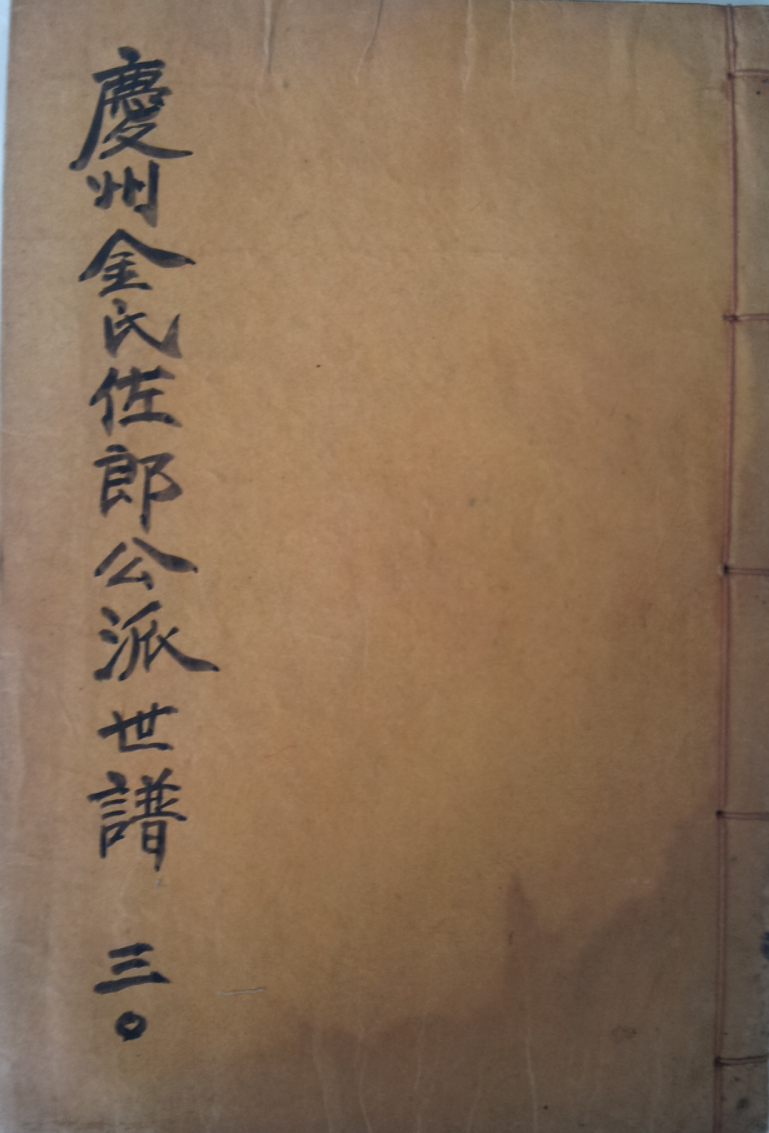 慶州金氏佐郎公派世譜 三〇